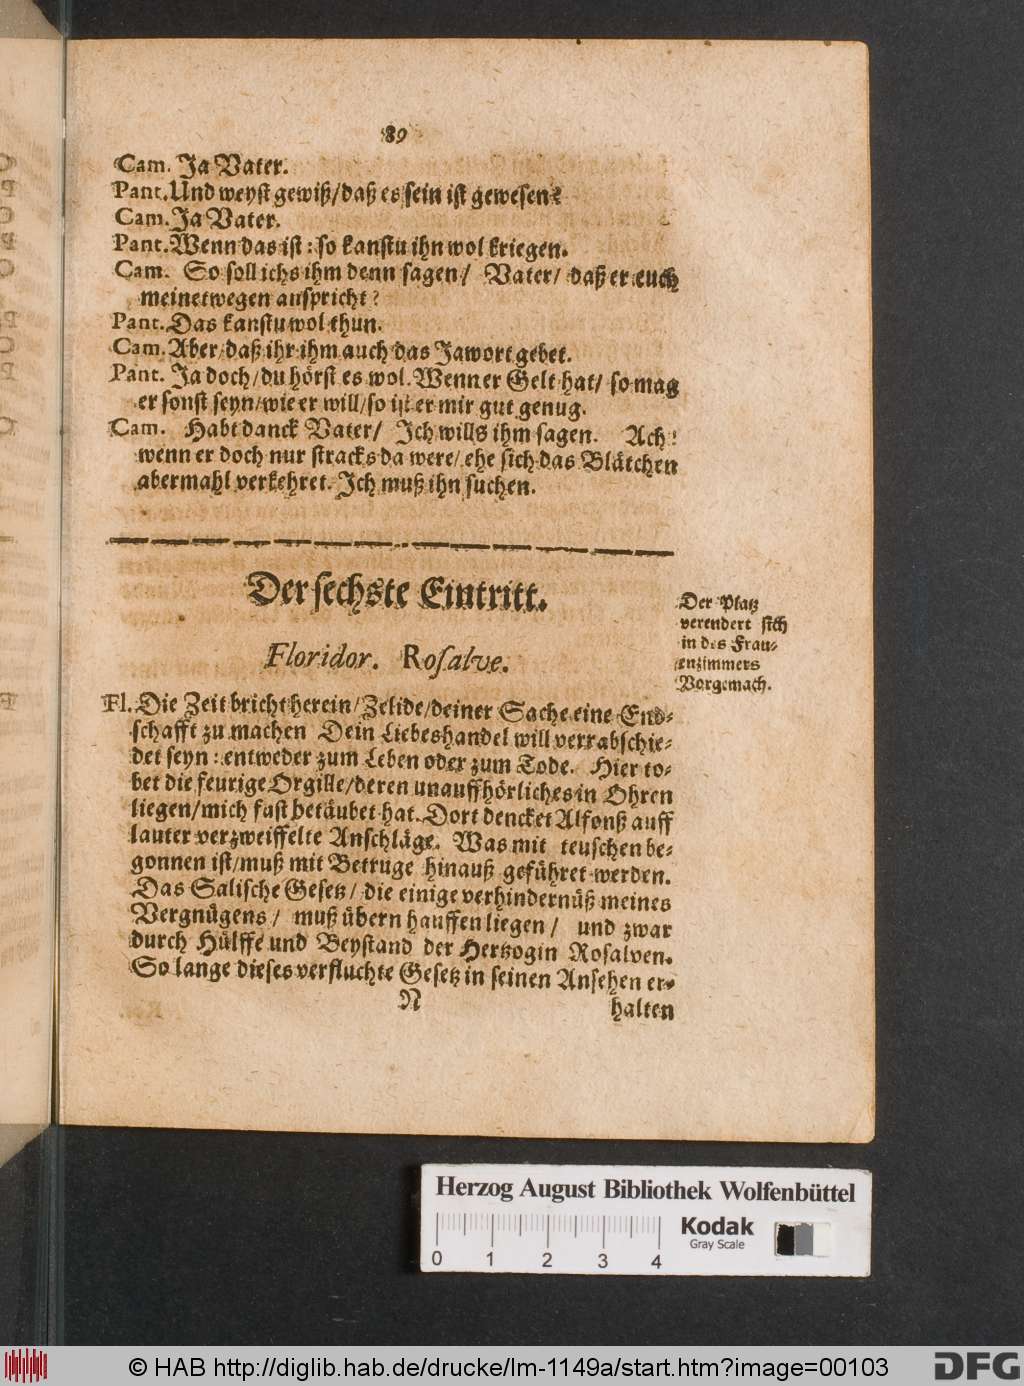 89
Cam. Ja Vater.
Pant. Und weyst gewiß/ daß es sein ist gewesen?
Cam. Ja Vater.
Pant. Wenn das ist: so kanstu ihn wol kriegen.
Cam. So soll ichs ihm denn sagen/ Vater/ daß er euch
meinetwegen anspricht?
Pant. Das kanstu wol thun.
Cam. Aber/ daß ihr ihm auch das Jawort gebet.
Pant. Ja doch/ du hörst es wol. Wenn er Gelt hat/ so mag
er sonst seyn/ wie er will/ so ist er mir gut genug.
Cam. Habt danck Vater/ Ich wills ihm sagen. Ach!
wenn er doch nur stracks da were/ ehe sich das Blätchen
abermahl verkehret. Ich muß ihn suchen.
Der sechste Eintritt.
Floridor. Rosalve.
Der Platz
verendert sich
in des Frau-
enzimmers
Vorgemach.
Fl. Die Zeit bricht herein/ Zelide/ deiner Sache eine End-
schafft zu machen Dein Liebeshandel will verrabschie-
det seyn: entweder zum Leben oder zum Tode. Hier to-
bet die feurige Orgille/ deren unauffhörliches in Ohren
liegen/ mich fast betäubet hat. Dort dencket Alfonß auff
lauter verzweiffelte Anschläge. Was mit teuschen be-
gonnen ist/ muß mit Betruge hinauß geführet werden.
Das Salische Gesetz/ die einige verhindernüß meines
Vergnügens/ muß übern hauffen liegen/ und zwar
durch Hülffe und Beystand der Hertzogin Rosalven.
So lange dieses verfluchte Gesetz in seinen Ansehen er-
N halten
Herzog August Bibliothek Wolfenbüttel
0 1 2 3 4
Kodak
Gray Scale
© HAB http://diglib.hab.de/drucke/lm-1149a/start.htm?image=00103
DFG